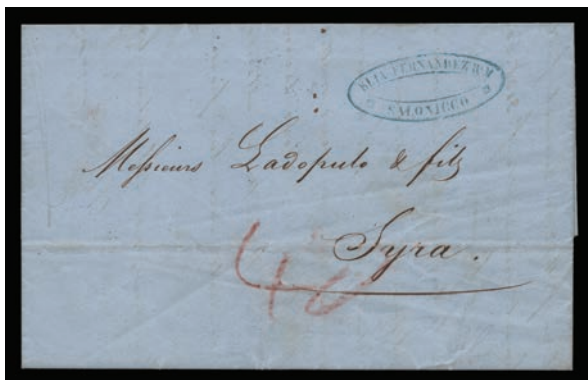 ELIA FERNANDEZ
SALONICCO
Messieurs Ladopulo & fils
Syra.
40